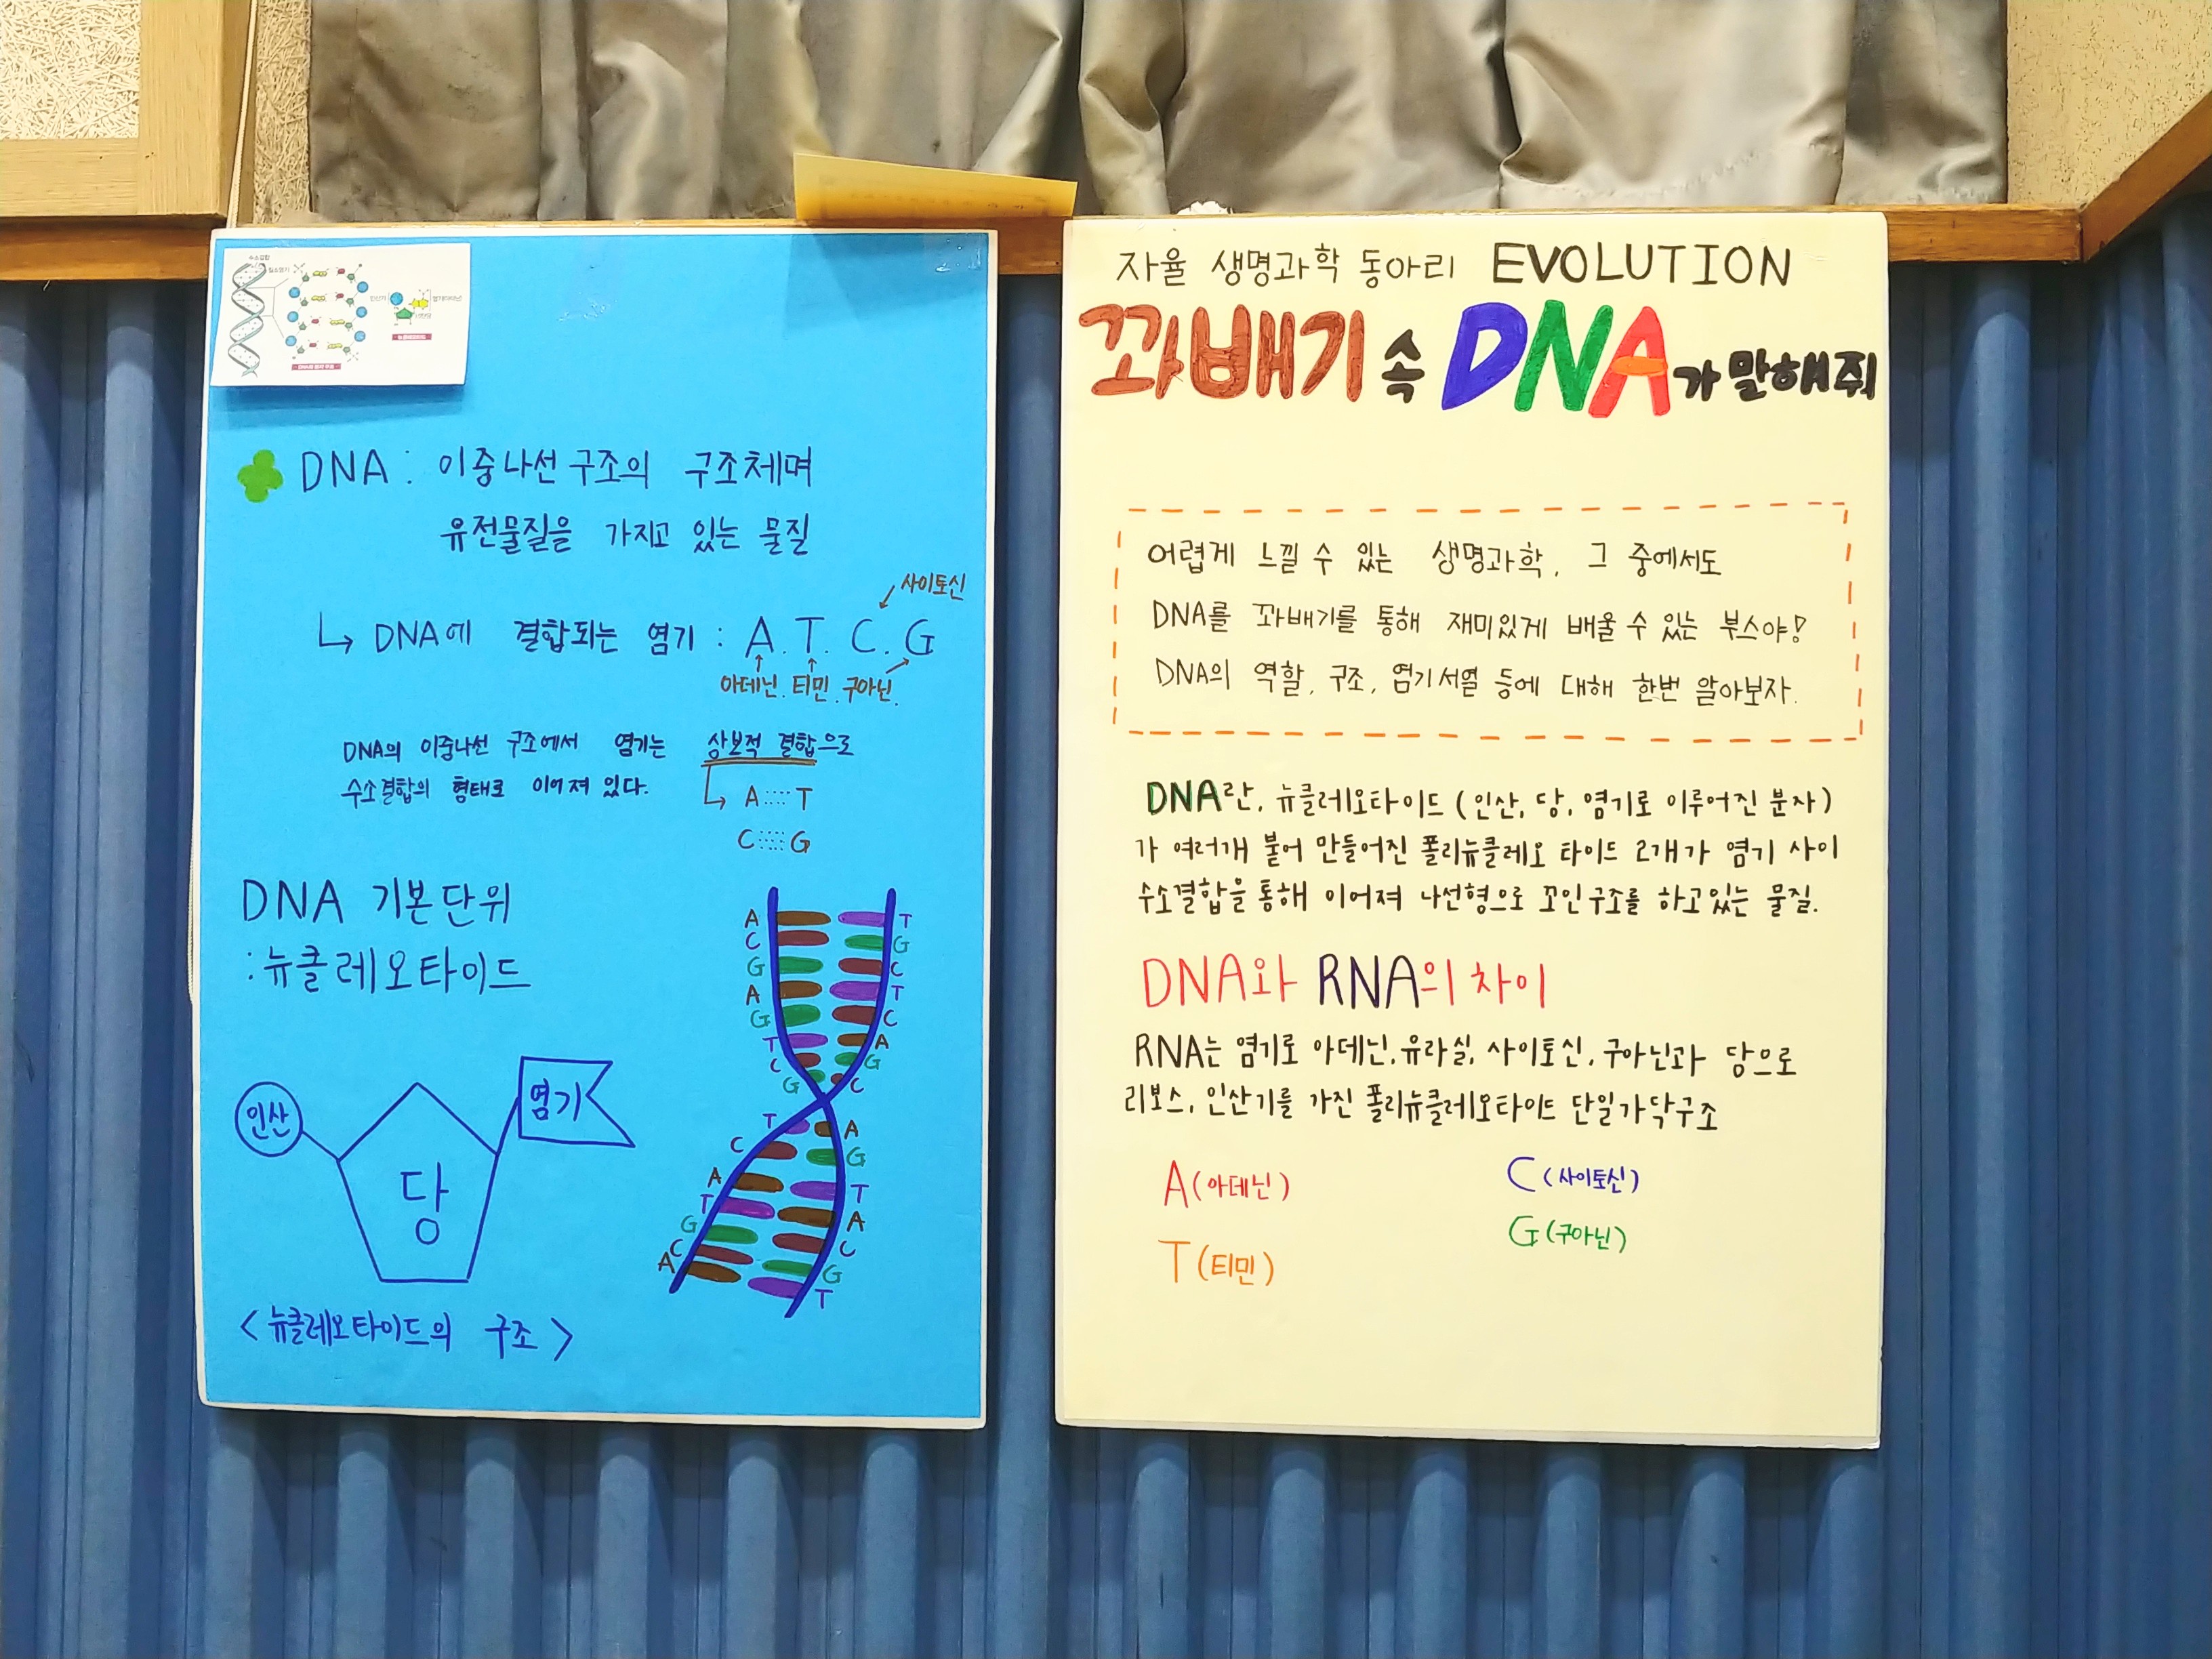 수소결합
DNA : 이중나선 구조의 구조체며
유전물질을 가지고 있는 물질
사이토신
↳ DNA에 결합되는 염기 : A. T. C. G
아데닌. 티민. 구아닌.
DNA의 이중나선 구조에서 염기는 상보적 결합으로
수소결합의 형태로 이어져 있다.
↳ A::::T
C::::G
DNA 기본단위
:뉴클레오타이드
인산
당
염기
<뉴클레오타이드의 구조>
A T
C G
G C
A T
G C
T A
C G
G C
T A
C G
A T
T A
G C
C G
A T
자율 생명과학 동아리 EVOLUTION
꽈배기 속 DNA가 말해줘
어렵게 느낄 수 있는 생명과학, 그 중에서도
DNA를 꽈배기를 통해 재미있게 배울 수 있는 부스야!
DNA의 역할, 구조, 염기서열 등에 대해 한번 알아보자.
DNA란, 뉴클레오타이드 (인산, 당, 염기로 이루어진 분자)
가 여러개 붙어 만들어진 폴리뉴클레오 타이드 2개가 염기 사이
수소결합을 통해 이어져 나선형으로 꼬인구조를 하고있는 물질.
DNA와 RNA의 차이
RNA는 염기로 아데닌, 유라실, 사이토신, 구아닌과 당으로
리보스, 인산기를 가진 폴리뉴클레오타이드 단일가닥구조
A(아데닌) C(사이토신)
T(티민) G(구아닌)